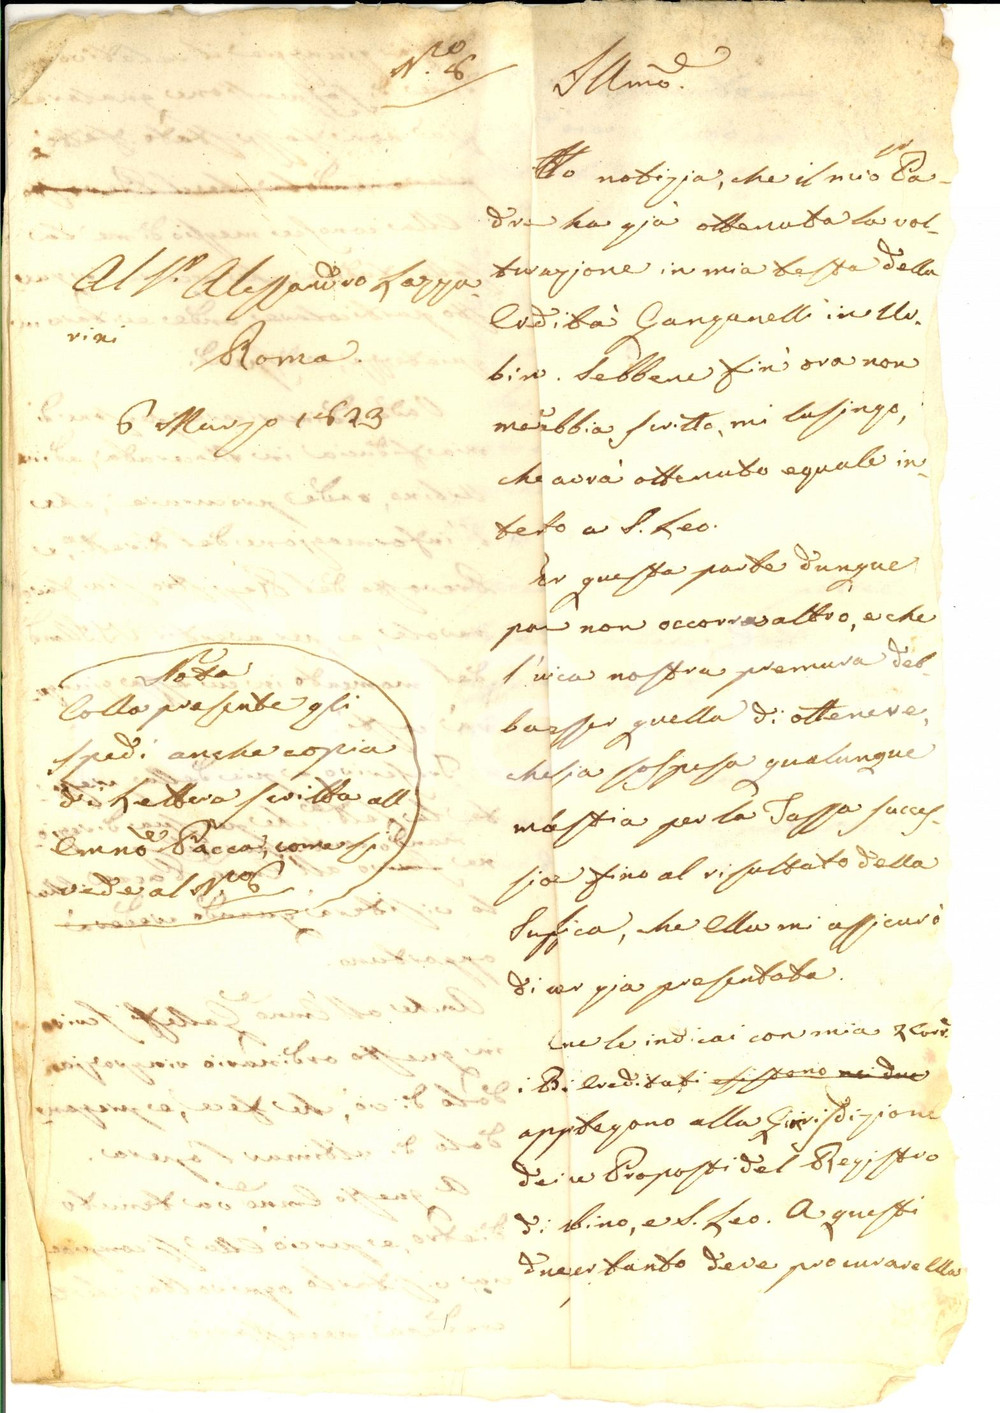 N.ro 6
Al S.r Alessandro Lazza-
rini
Roma.
6 Marzo 1823
Nota
Colla presente gli
spedì anche copia
di Lettera scritta all'
Emmo Pacca, come si
vede al N.ro 6
Illmo.
Ho notizia, che il mio Pa-
dre ha già ottenuta la vol-
turazione in mia testa della
Eredità Ganganelli in Ur-
bin. Sebbene fin' ora non
me abbia scritto, mi lusingo,
che avrà ottenuto eguale in-
teto a S. Leo.
Per questa parte dunque
par non occorre altro, e che
l'uica nostra premura deb-
ba esser quella di ottenere,
che sia sospesa qualunque
mastia per la Tassa succes-
sioe fino al risultato della
Suplica, che Ella mi assicurò
di aver già presentata.
Che le indicai con mia 2 Corr.
i Bi Ereditati esistono nei due
apptegono alla Giurisdizione
dei ue Proposti del Registro
di Ubino, e S. Leo. A questi
due er tanto deve procurare Ella